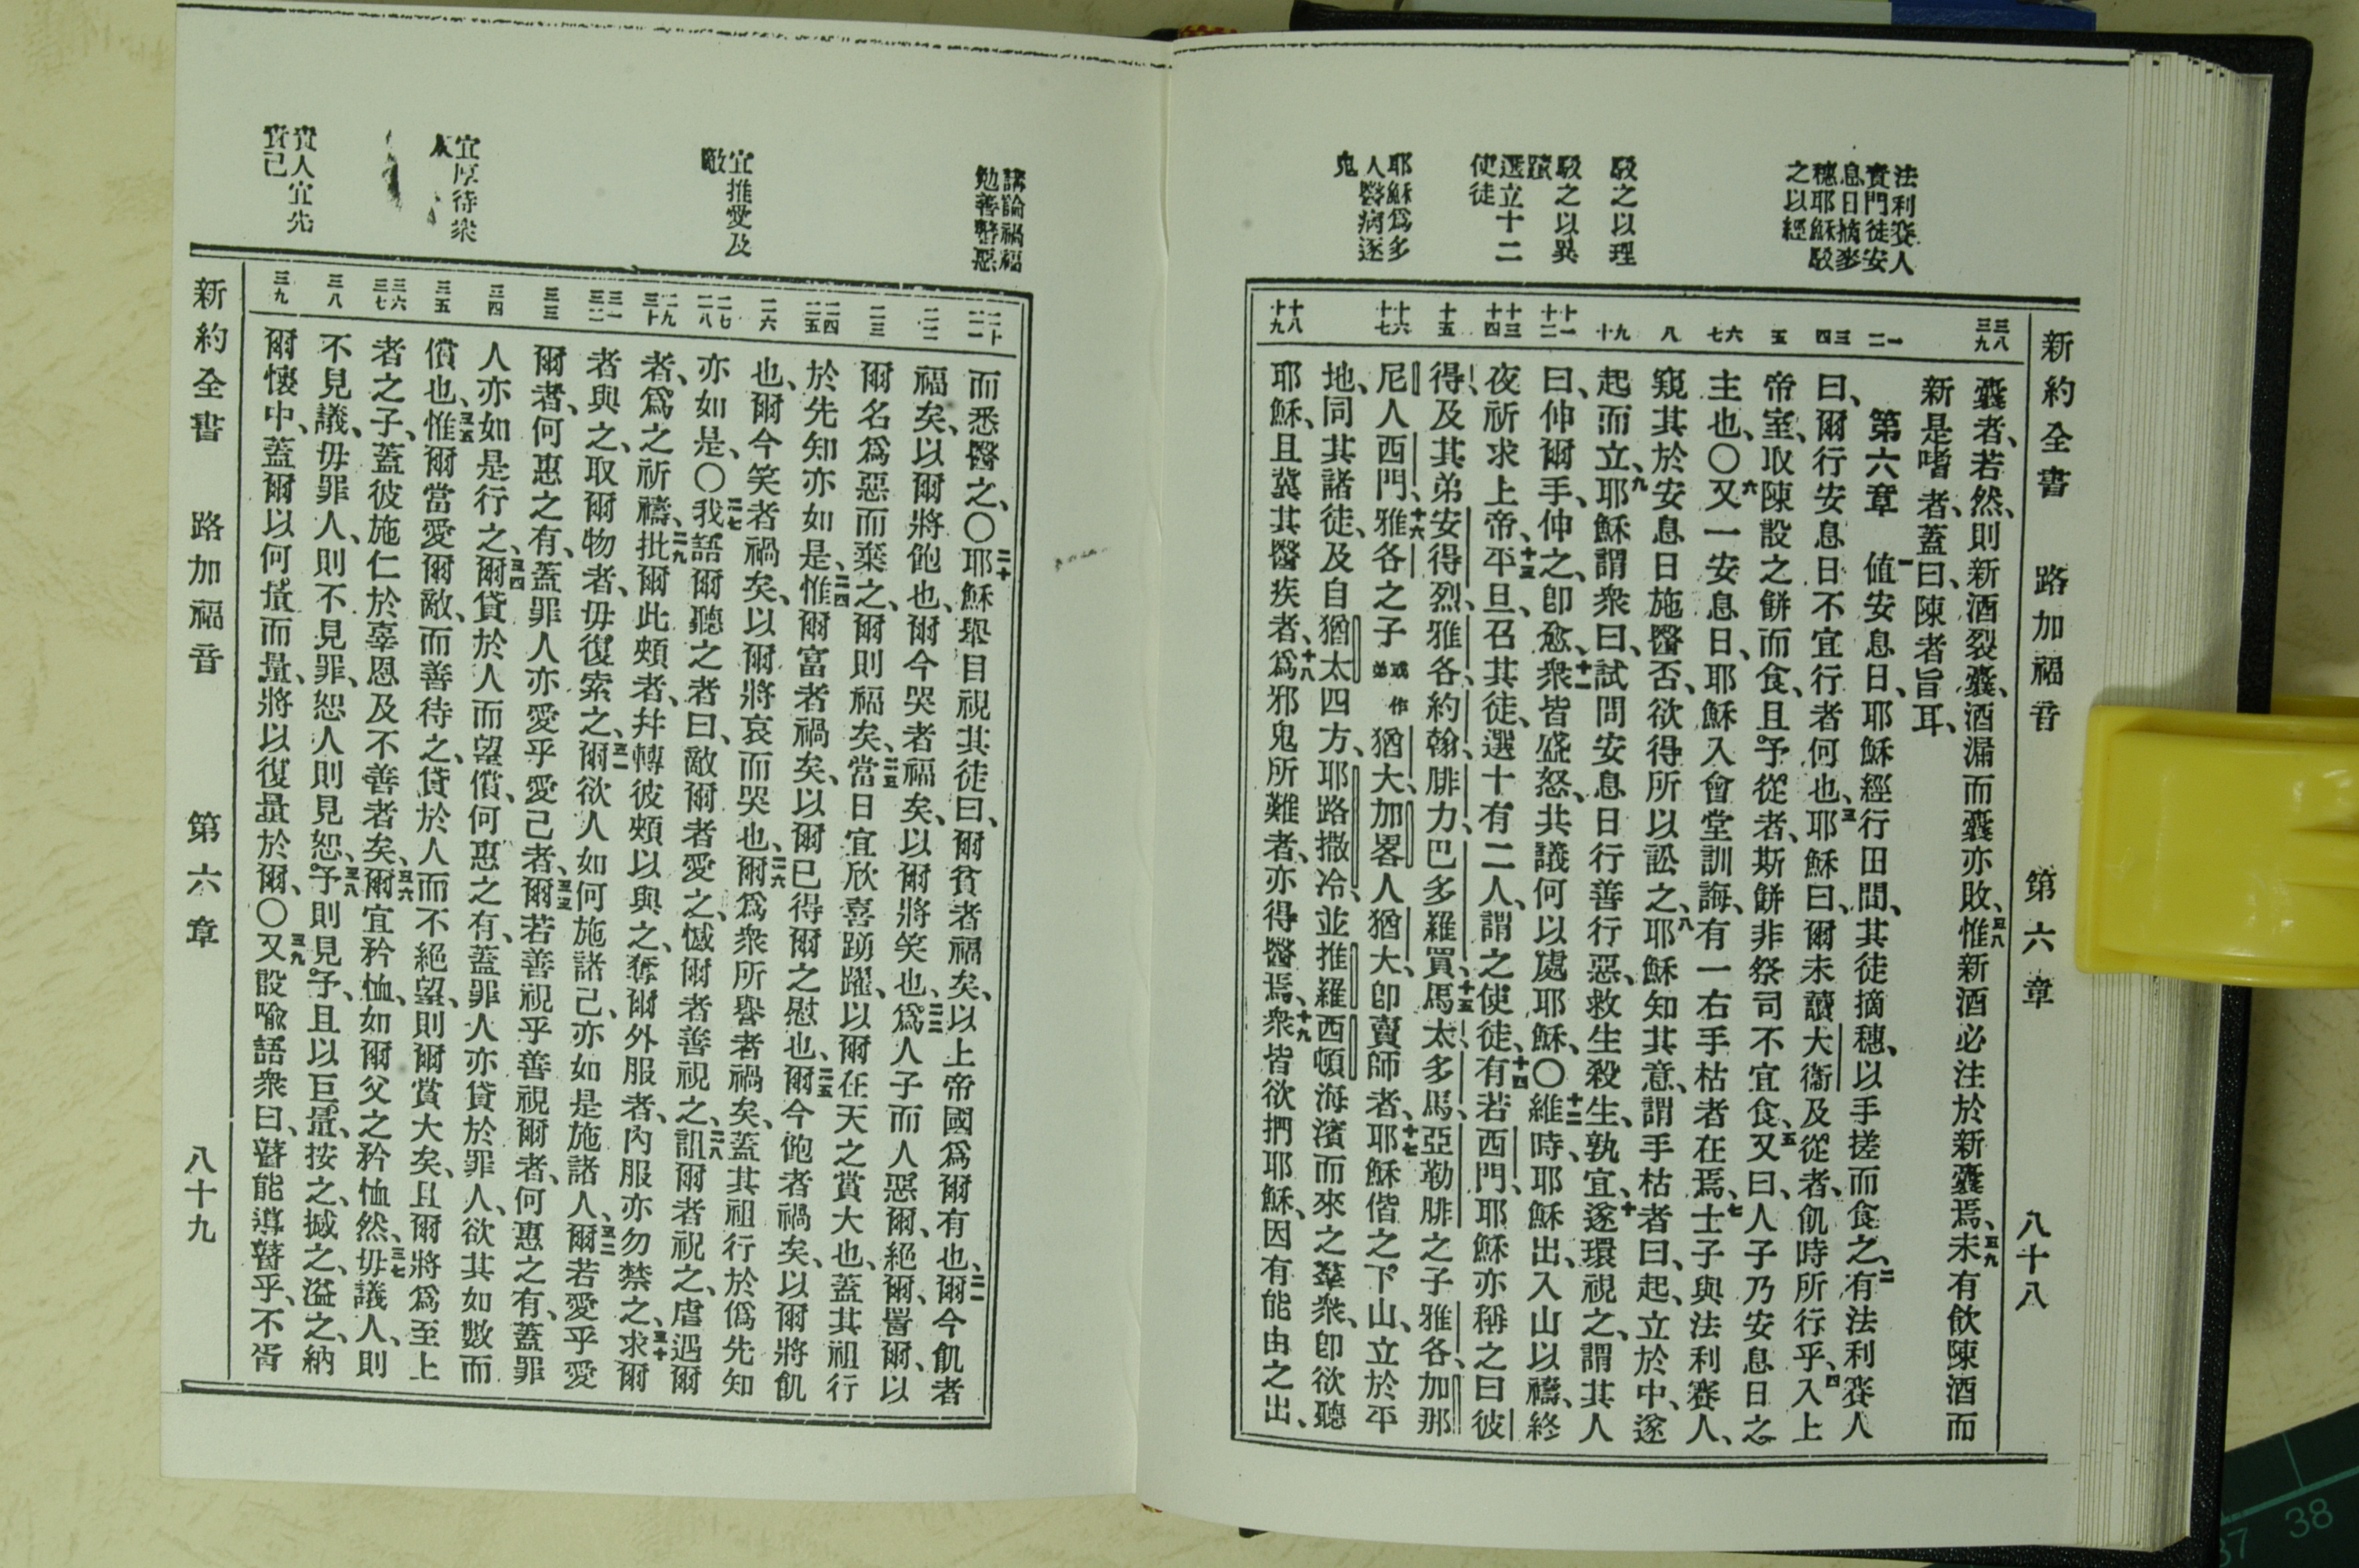 新約全書 路加福音 第六章 八十八
法利賽人
責門徒安
息日摘麥
穗耶穌駁
之以經
駁之以理
駁之以異
蹟
選立十二
使徒
耶穌爲多
人醫病逐
鬼
三八
三九
一
二
三
四
五
六
七
八
九
十
十一
十二
十三
十四
十五
十六
十七
十八
十九
囊者、若然、則新酒裂囊、酒漏而囊亦敗、三八惟新酒必注於新囊焉、三九未有飲陳酒而
新是嗜者、蓋曰、陳者旨耳、
第六章 一値安息日、耶穌經行田間、其徒摘穗、以手搓而食之、二有法利賽人
曰、爾行安息日不宜行者何也、三耶穌曰、爾未讀大衞及從者、飢時所行乎、四入上
帝室、取陳設之餅而食、且予從者、斯餅非祭司不宜食、五又曰、人子乃安息日之
主也、〇六又一安息日、耶穌入會堂訓誨、有一右手枯者在焉、七士子與法利賽人、
窺其於安息日施醫否、欲得所以訟之、八耶穌知其意、謂手枯者曰、起、立於中、遂
起而立、九耶穌謂衆曰、試問安息日行善行惡、救生殺生、孰宜、十遂環視之、謂其人
曰、伸爾手、伸之、卽愈、十一衆皆盛怒、共議何以處耶穌、〇十二維時、耶穌出、入山以禱、終
夜祈求上帝、十三平旦、召其徒、選十有二人、謂之使徒、十四有若西門、耶穌亦稱之曰彼
得、及其弟安得烈、雅各、約翰、腓力、巴多羅買、十五馬太、多馬、亞勒腓之子雅各、加那
尼人西門、十六雅各之子或作弟猶大、加畧人猶大、卽賣師者、十七耶穌偕之下山、立於平
地、同其諸徒、及自猶太四方、耶路撒冷、並推羅西頓海濱而來之羣衆、卽欲聽
耶穌、且冀其醫疾者、十八爲邪鬼所難者、亦得醫焉、十九衆皆欲捫耶穌、因有能由之出、
講論禍福
勉善警惡
宜推愛及
敵
宜厚待衆
人
責人宜先
責己
二十
二一
二二
二三
二四
二五
二六
二七
二八
二九
三十
三一
三二
三三
三四
三五
三六
三七
三八
三九
而悉醫之、〇二十耶穌舉目視其徒曰、爾貧者福矣、以上帝國爲爾有也、二一爾今飢者
福矣、以爾將飽也、爾今哭者福矣、以爾將笑也、二二爲人子而人惡爾、絕爾、詈爾、以
爾名爲惡而棄之、爾則福矣、二三當日宜欣喜踴躍、以爾在天之賞大也、蓋其祖行
於先知亦如是、二四惟爾富者禍矣、以爾已得爾之慰也、二五爾今飽者禍矣、以爾將飢
也、爾今笑者禍矣、以爾將哀而哭也、二六爾爲衆所譽者禍矣、蓋其祖行於僞先知
亦如是、〇二七我語爾聽之者曰、敵爾者愛之、憾爾者善視之、二八詛爾者祝之、虐遇爾
者、爲之祈禱、二九批爾此頰者、幷轉彼頰以與之、奪爾外服者、內服亦勿禁之、三十求爾
者與之、取爾物者、毋復索之、三一爾欲人如何施諸己、亦如是施諸人、三二爾若愛乎愛
爾者、何惠之有、蓋罪人亦愛乎愛己者、三三爾若善視乎善視爾者、何惠之有、蓋罪
人亦如是行之、三四爾貸於人而望償、何惠之有、蓋罪人亦貸於罪人、欲其如數而
償也、三五惟爾當愛爾敵、而善待之、貸於人而不絕望、則爾賞大矣、且爾將爲至上
者之子、蓋彼施仁於辜恩及不善者矣、三六爾宜矜恤、如爾父之矜恤然、三七毋議人、則
不見議、毋罪人、則不見罪、恕人則見恕、三八予則見予、且以巨量、按之、撼之、溢之、納
爾懷中、蓋爾以何量而量、將以復量於爾、〇三九又設喩語衆曰、瞽能導瞽乎、不胥
新約全書 路加福音 第六章 八十九
37 38